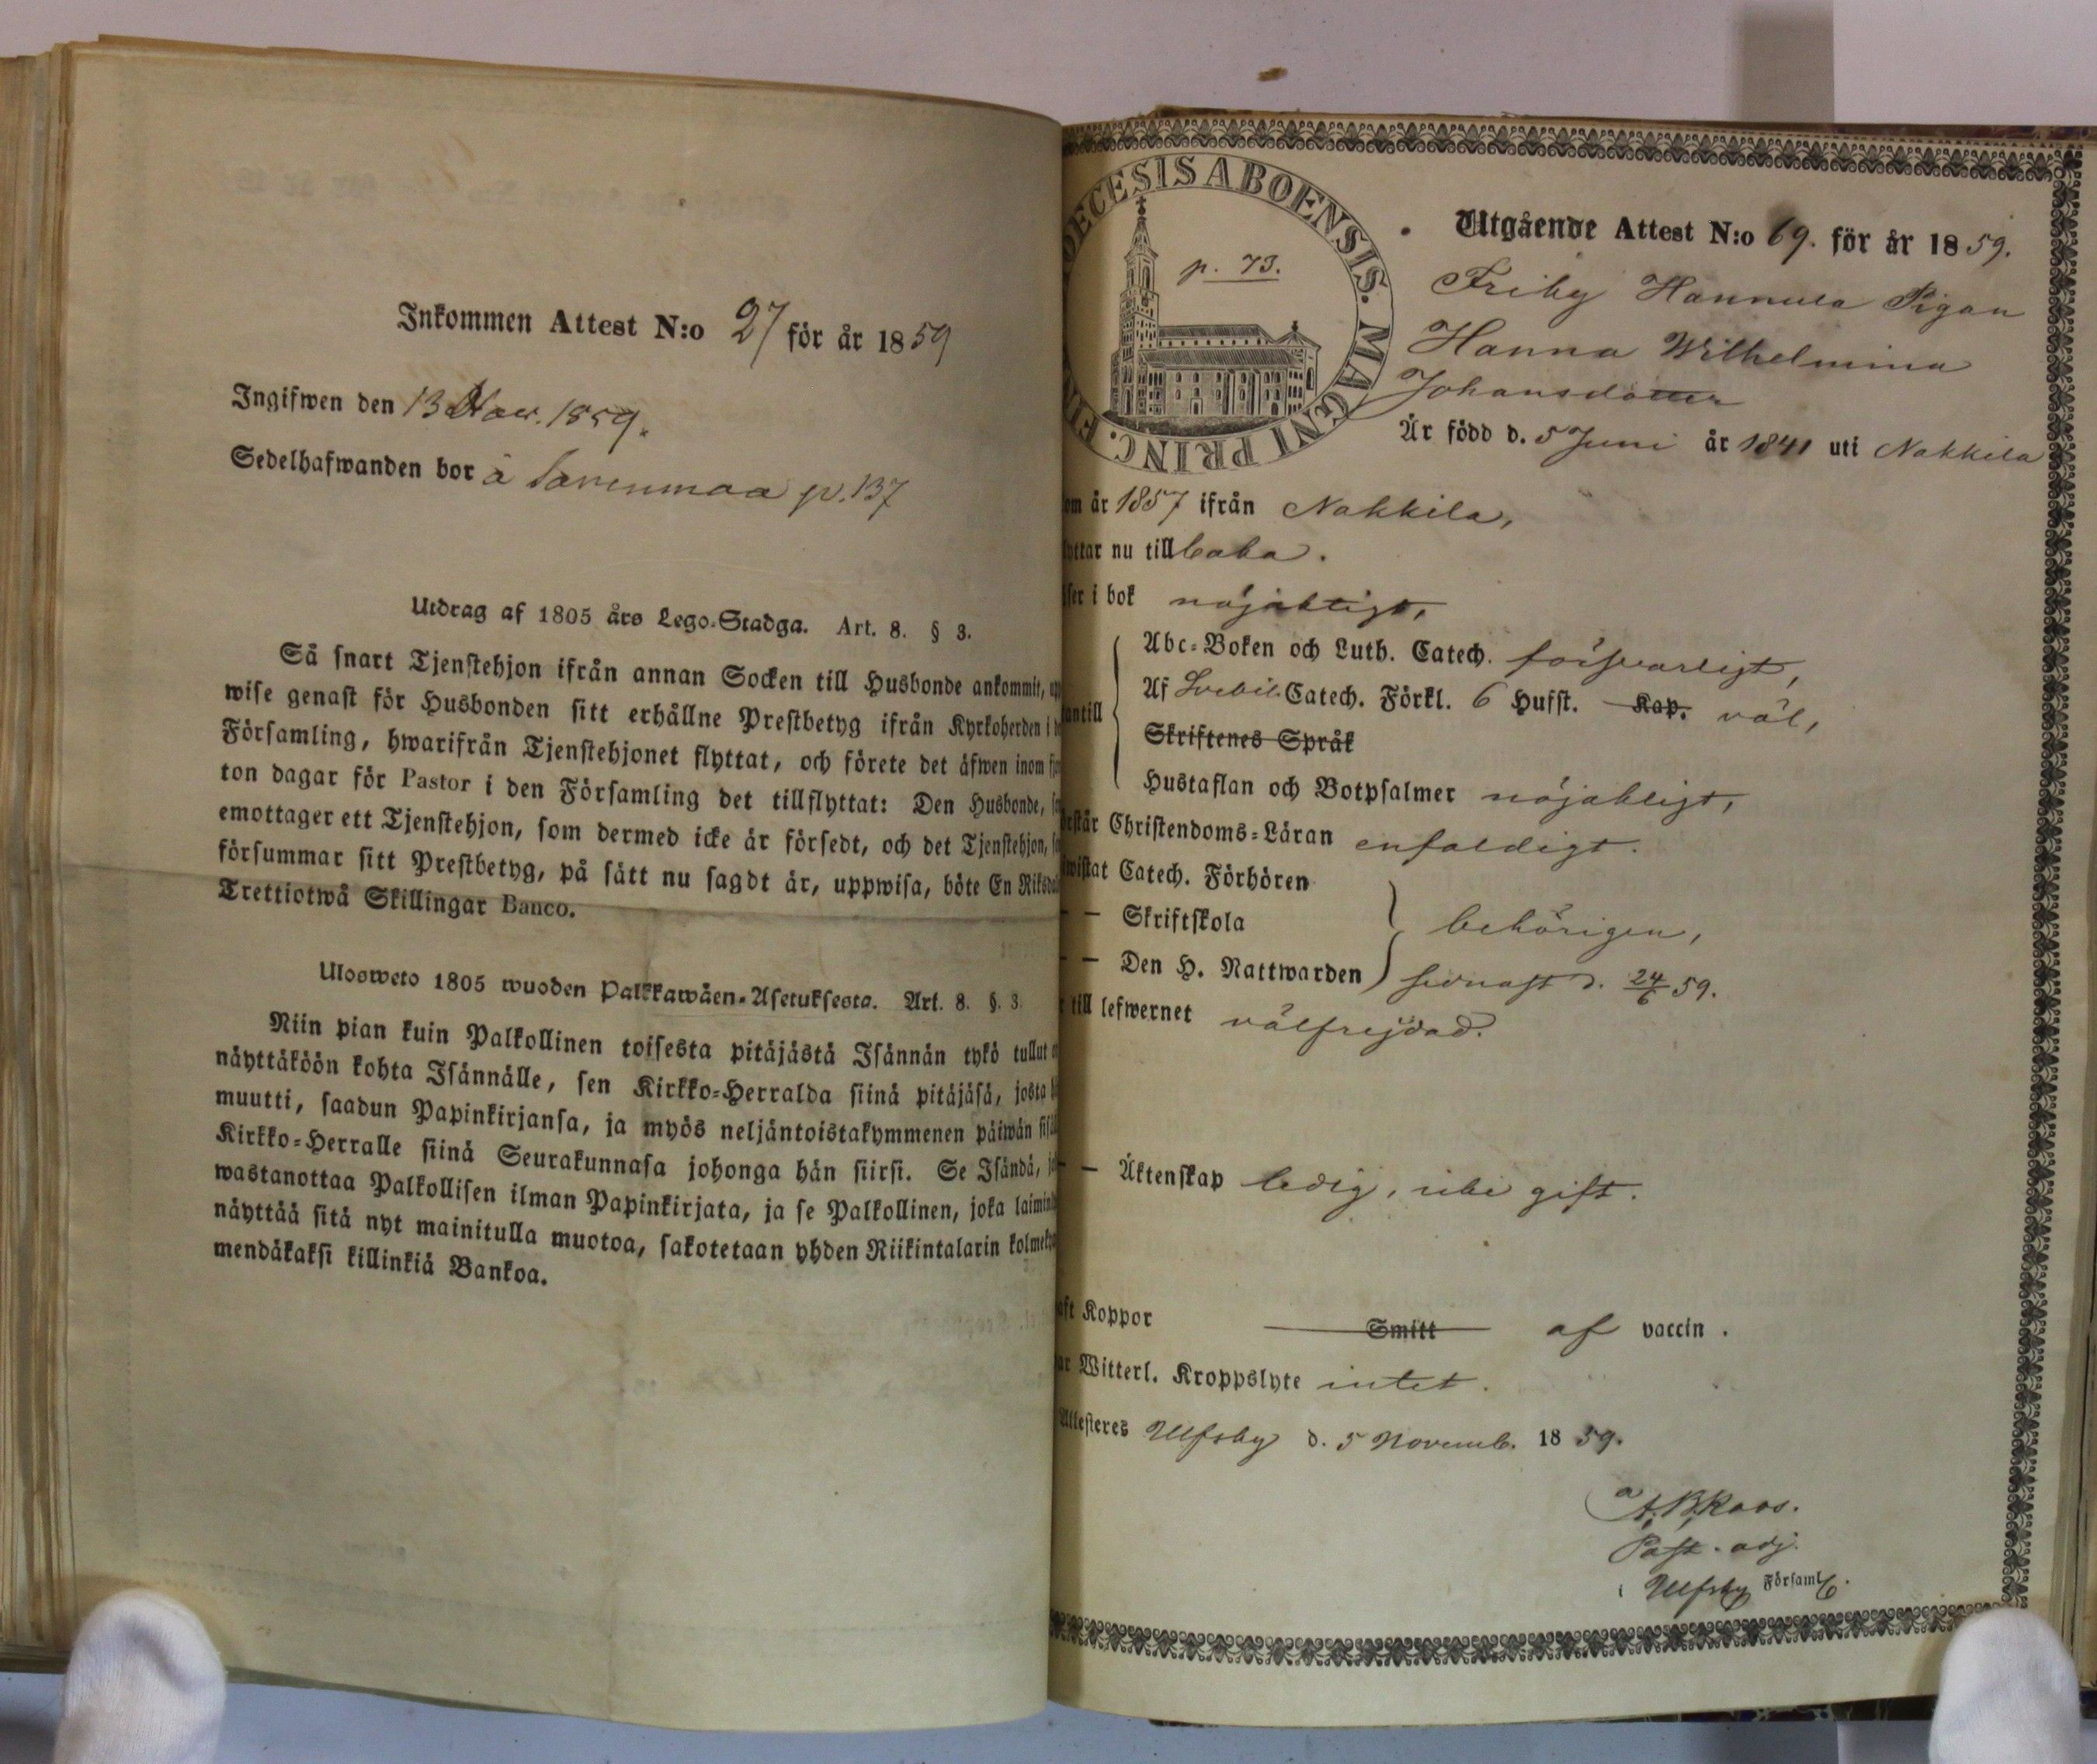 Inkommen Attest N:o 27 för år 1859
Ingifwen den 13 Nov. 1859.
Sedelhafwanden bor å Savenmaa p. 137
Utdrag af 1805 års Lego-Stadga. Art. 8. § 3.
Så snart Tjenstehjon ifrån annan Socken till Husbonde ankommit, upp
wise genast för Husbonden sitt erhållne Prestbetyg ifrån Kyrkoherden i
Församling, hwarifrån Tjenstehjonet flyttat, och förete det äfwen inom
ton dagar för Pastor i den Församling det tillflyttat: Den Husbonde,
emottager ett Tjenstehjon, som dermed icke är försedt, och det Tjenstehjon,
försummar sitt Prestbetyg, på sätt nu sagdt är, uppwisa, böte En Riksda
Trettiotwå Skillingar Banco.
Ulosweto 1805 wuoden Palkkawäen-Asetuksesta. Art. 8. §. 3.
Niin pian kuin Palkollinen toisesta pitäjästä Isännän tykö tullut
näyttäköön kohta Isännälle, sen Kirkko-Herralda siinä pitäjäsä, josta
muutti, saadun Papinkirjansa, ja myös neljäntoistakymmenen päiwän sisäl
Kirkko-Herralle siinä Seurakunnasa johonga hän siirsi. Se Isändä,
wastanottaa Palkollisen ilman Papinkirjata, ja se Palkollinen, joka laimin
näyttää sitä nyt mainitulla muotoa, sakotetaan yhden Riikintalarin kolmeky
mendäkaksi killinkiä Bankoa.
DECESIS ABOENSIS. MAGNI PRINC. FIN
p. 73.
Utgående Attest N:o 69. för år 1859.
Friby Hannula Pigan
Hanna Wilhelmina
Johansdotter
Är född d. 5 Juni år 1841 uti Nakkila
om år 1857 ifrån Nakkila,
yttar nu tillbaka.
ser i bok nöjaktigt,
Abc-Boken och Luth. Catech. försvarligt,
antill Af Svebil. Catech. Förkl. 6 Hufst. Kap. väl,
Skriftenes Språk
Hustaflan och Botpsalmer nöjaktigt,
rstår Christendoms-Läran enfaldigt.
wistat Catech. Förhören
— Skriftskola behörigen,
— Den H. Nattwarden sednast d. 24/6 59.
till lefwernet välfrejdad.
— Äktenskap ledig, icke gift.
aft Koppor Smitt af vaccin.
ar Witterl. Kroppslyte intet.
Attesteres Ulfsby d. 5 Novemb. 1859.
A. B. Roos.
Past. adj.
i Ulfsby Församl.